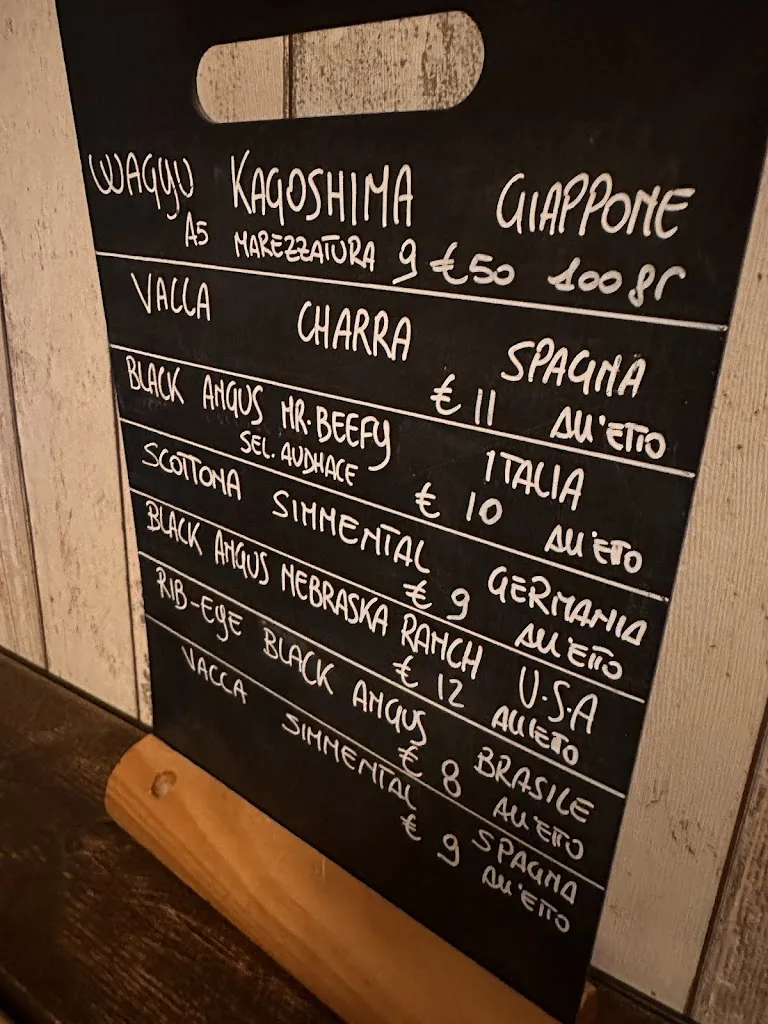 WAGYU KAGOSHIMA GIAPPONE
A5 MAREZZATURA 9 €50 100gr
VACCA CHARRA SPAGNA
€ 11 ALL'ETTO
BLACK ANGUS MR. BEEFY ITALIA
SEL. AUDHACE € 10 ALL'ETTO
SCOTTONA SIMMENTAL GERMANIA
€ 9 ALL'ETTO
BLACK ANGUS NEBRASKA RANCH U.S.A
€ 12 ALL'ETTO
RIB-EYE BLACK ANGUS BRASILE
€ 8 ALL'ETTO
VACCA SIMMENTAL SPAGNA
€ 9 ALL'ETTO